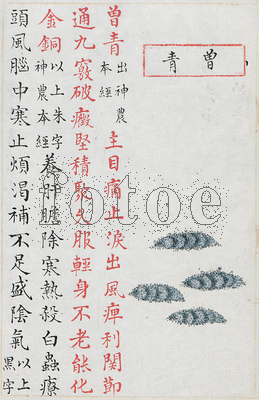 曾青
曾青出神農本經主目痛止淚出風痺利關節
通九竅破癥堅積聚久服輕身不老能化
金銅以上朱字神農本經養肝膽除寒熱殺白蟲療
頭風腦中寒止煩渴補不足盛陰氣以上黑字
fotoe